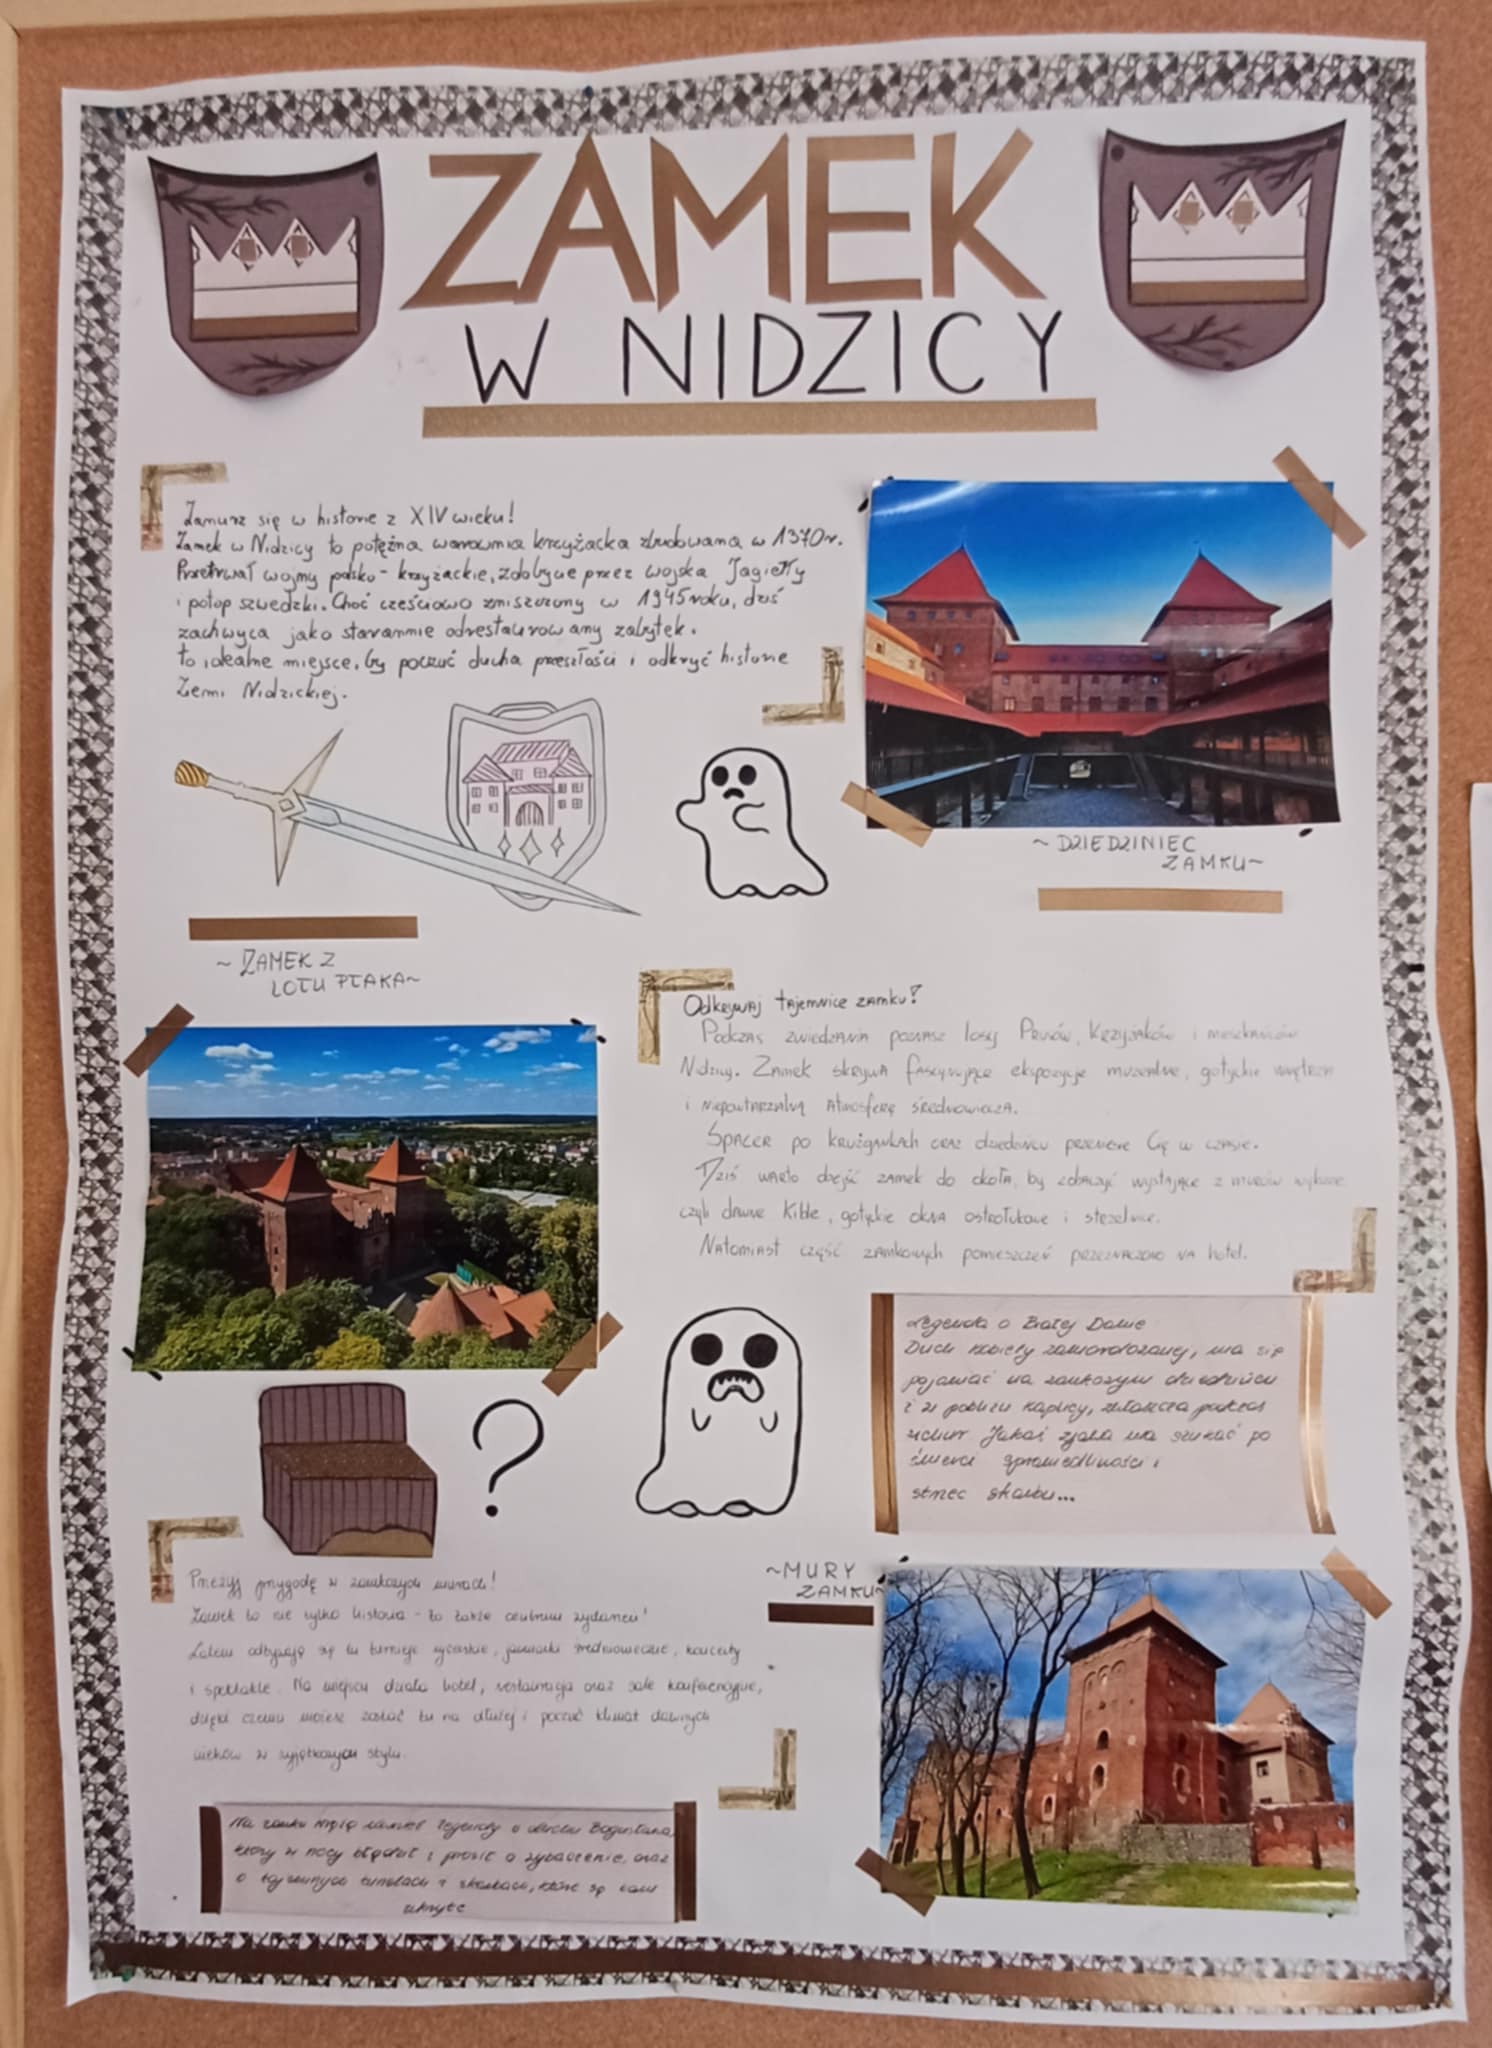 ZAMEK
W NIDZICY
Zanurz się w historię z XIV wieku!
Zamek w Nidzicy to potężna warownia krzyżacka zbudowana w 1370r.
Przetrwał wojny polsko-krzyżackie, zdobycie przez wojska Jagiełły
i potop szwedzki. Choć częściowo zniszczony w 1945 roku, dziś
zachwyca jako starannie odrestaurowany zabytek.
to idealne miejsce, by poczuć ducha przeszłości i odkryć historię
Ziemi Nidzickiej.
~ DZIEDZINIEC
ZAMKU~
~ ZAMEK Z
LOTU PTAKA~
Odkrywaj tajemnice zamku!
Podczas zwiedzania poznasz losy Prusów, Krzyżaków i mieszkańców
Nidzicy. Zamek skrywa fascynujące ekspozycje muzealne, gotyckie wnętrza
i niepowtarzalną atmosferę średniowiecza.
Spacer po krużgankach oraz dziedzińcu przeniesie Cię w czasie.
Dziś warto obejść zamek do okoła, by zobaczyć wystające z murów wykusze
czyli dawne kible, gotyckie okna ostrołukowe i strzelnice.
Natomiast część zamkowych pomieszczeń przeznaczono na hotel.
Legenda o Białej Damie
Duch kobiety zamordowanej, ma się
pojawiać na zamkowym dziedzińcu
i w pobliżu kaplicy, zwłaszcza podczas
wichur Jakaś zjawa ma szukać po
śmierci sprawiedliwości i
strzec skarbu...
?
~MURY
ZAMKU~
Przeżyj przygodę w zamkowych murach!
Zamek to nie tylko historia - to także centrum wydarzeń!
Latem odbywają się tu turnieje rycerskie, jarmarki średniowieczne, koncerty
i spektakle. Na miejscu działa hotel, restauracja oraz sale konferencyjne,
dzięki czemu możesz zostać tu na dłużej i poczuć klimat dawnych
wieków w wyjątkowym stylu.
Na zamku wiążą również legendy o duchu
który w nocy błądził i prosił o wybaczenie, oraz
o tajemnych tunelach i skarbach, które są tam
ukryte